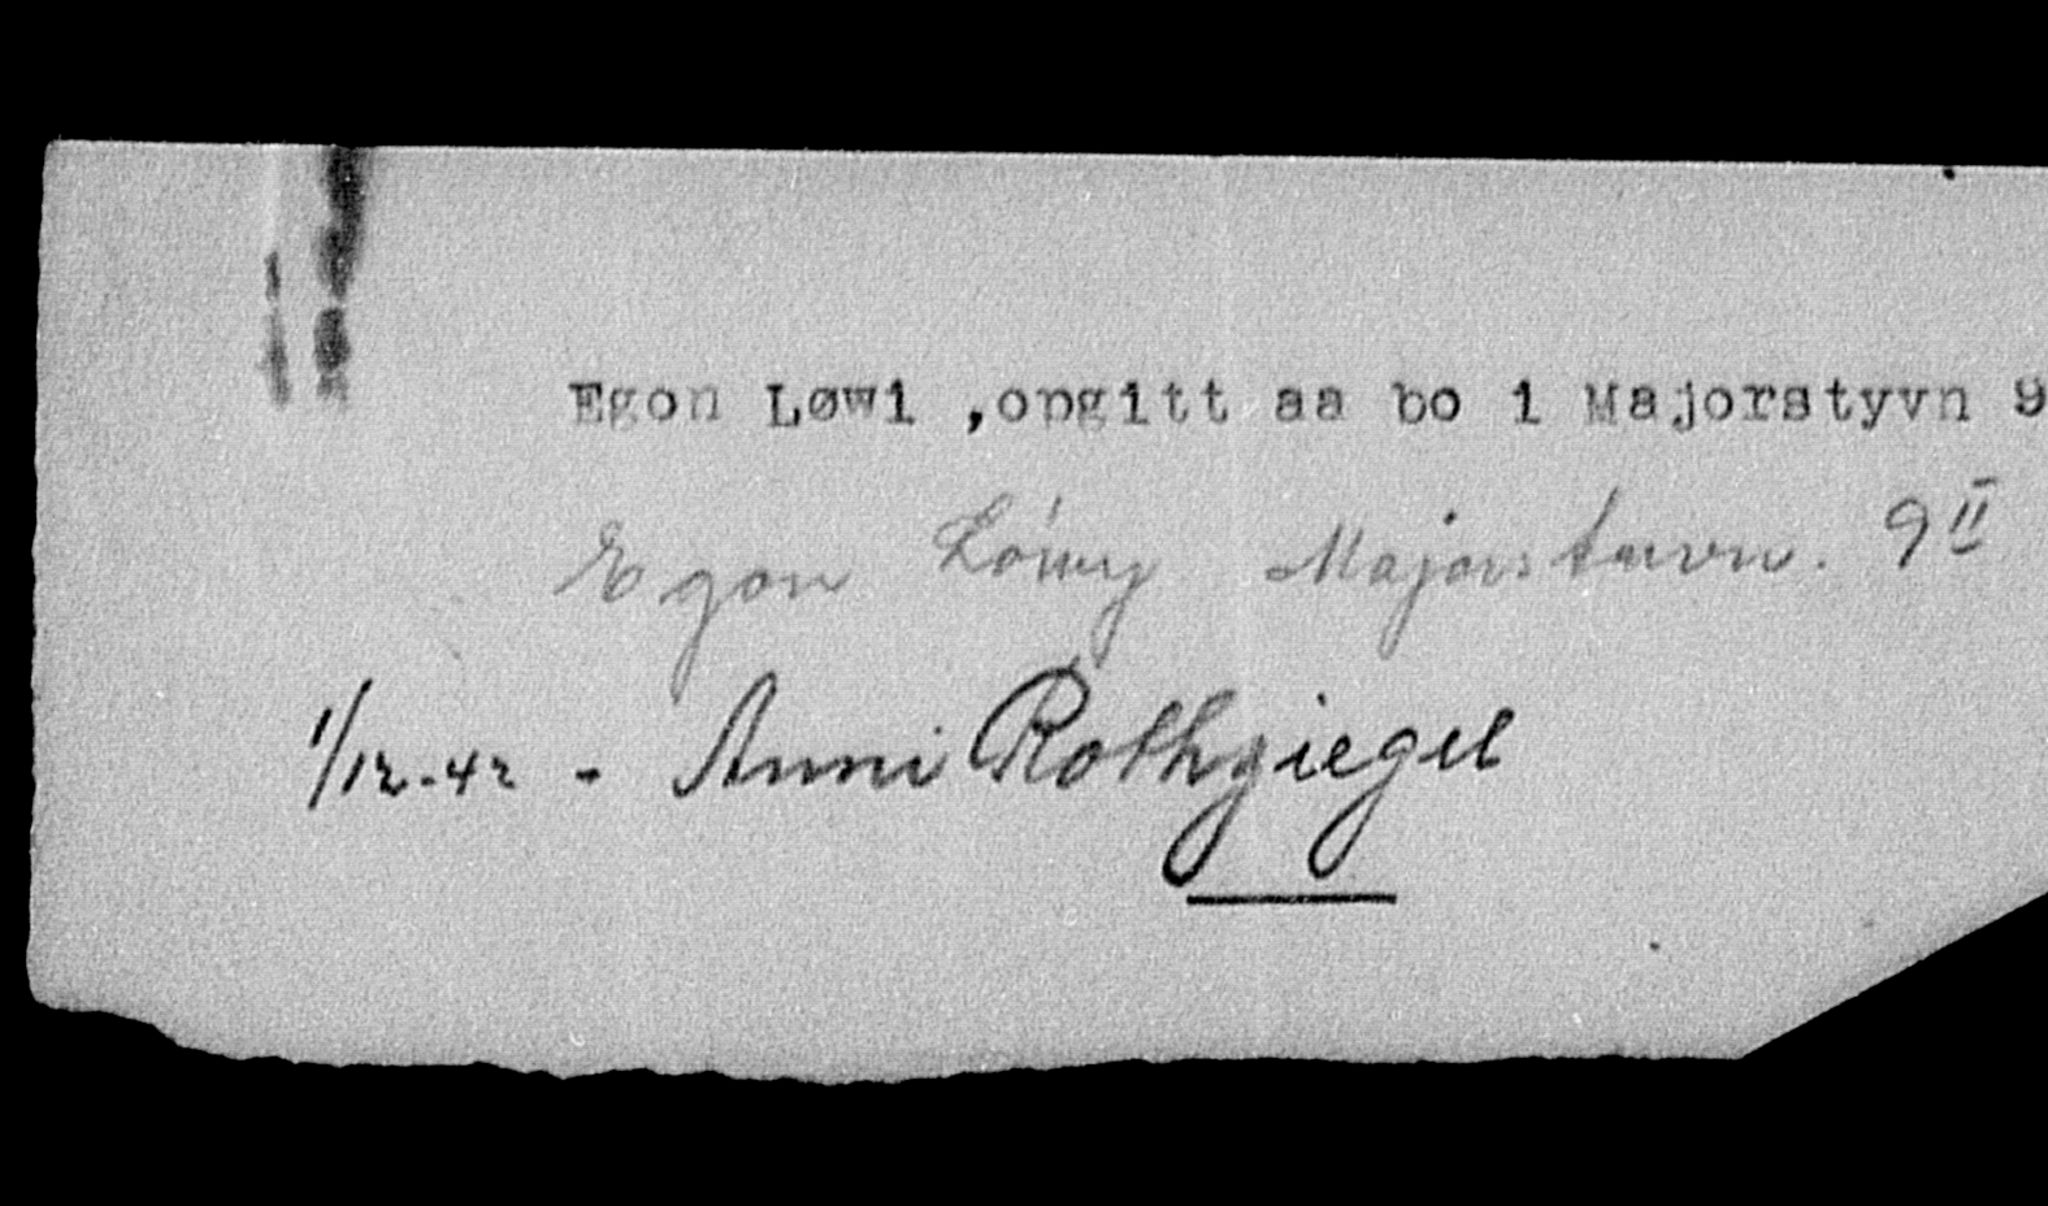 Egon Løwi ,opgitt aa bo i Majorstyvn 9
Egon Löwy Majorstuvn. 9 II
1/12-42 - Anni Rothgiegel